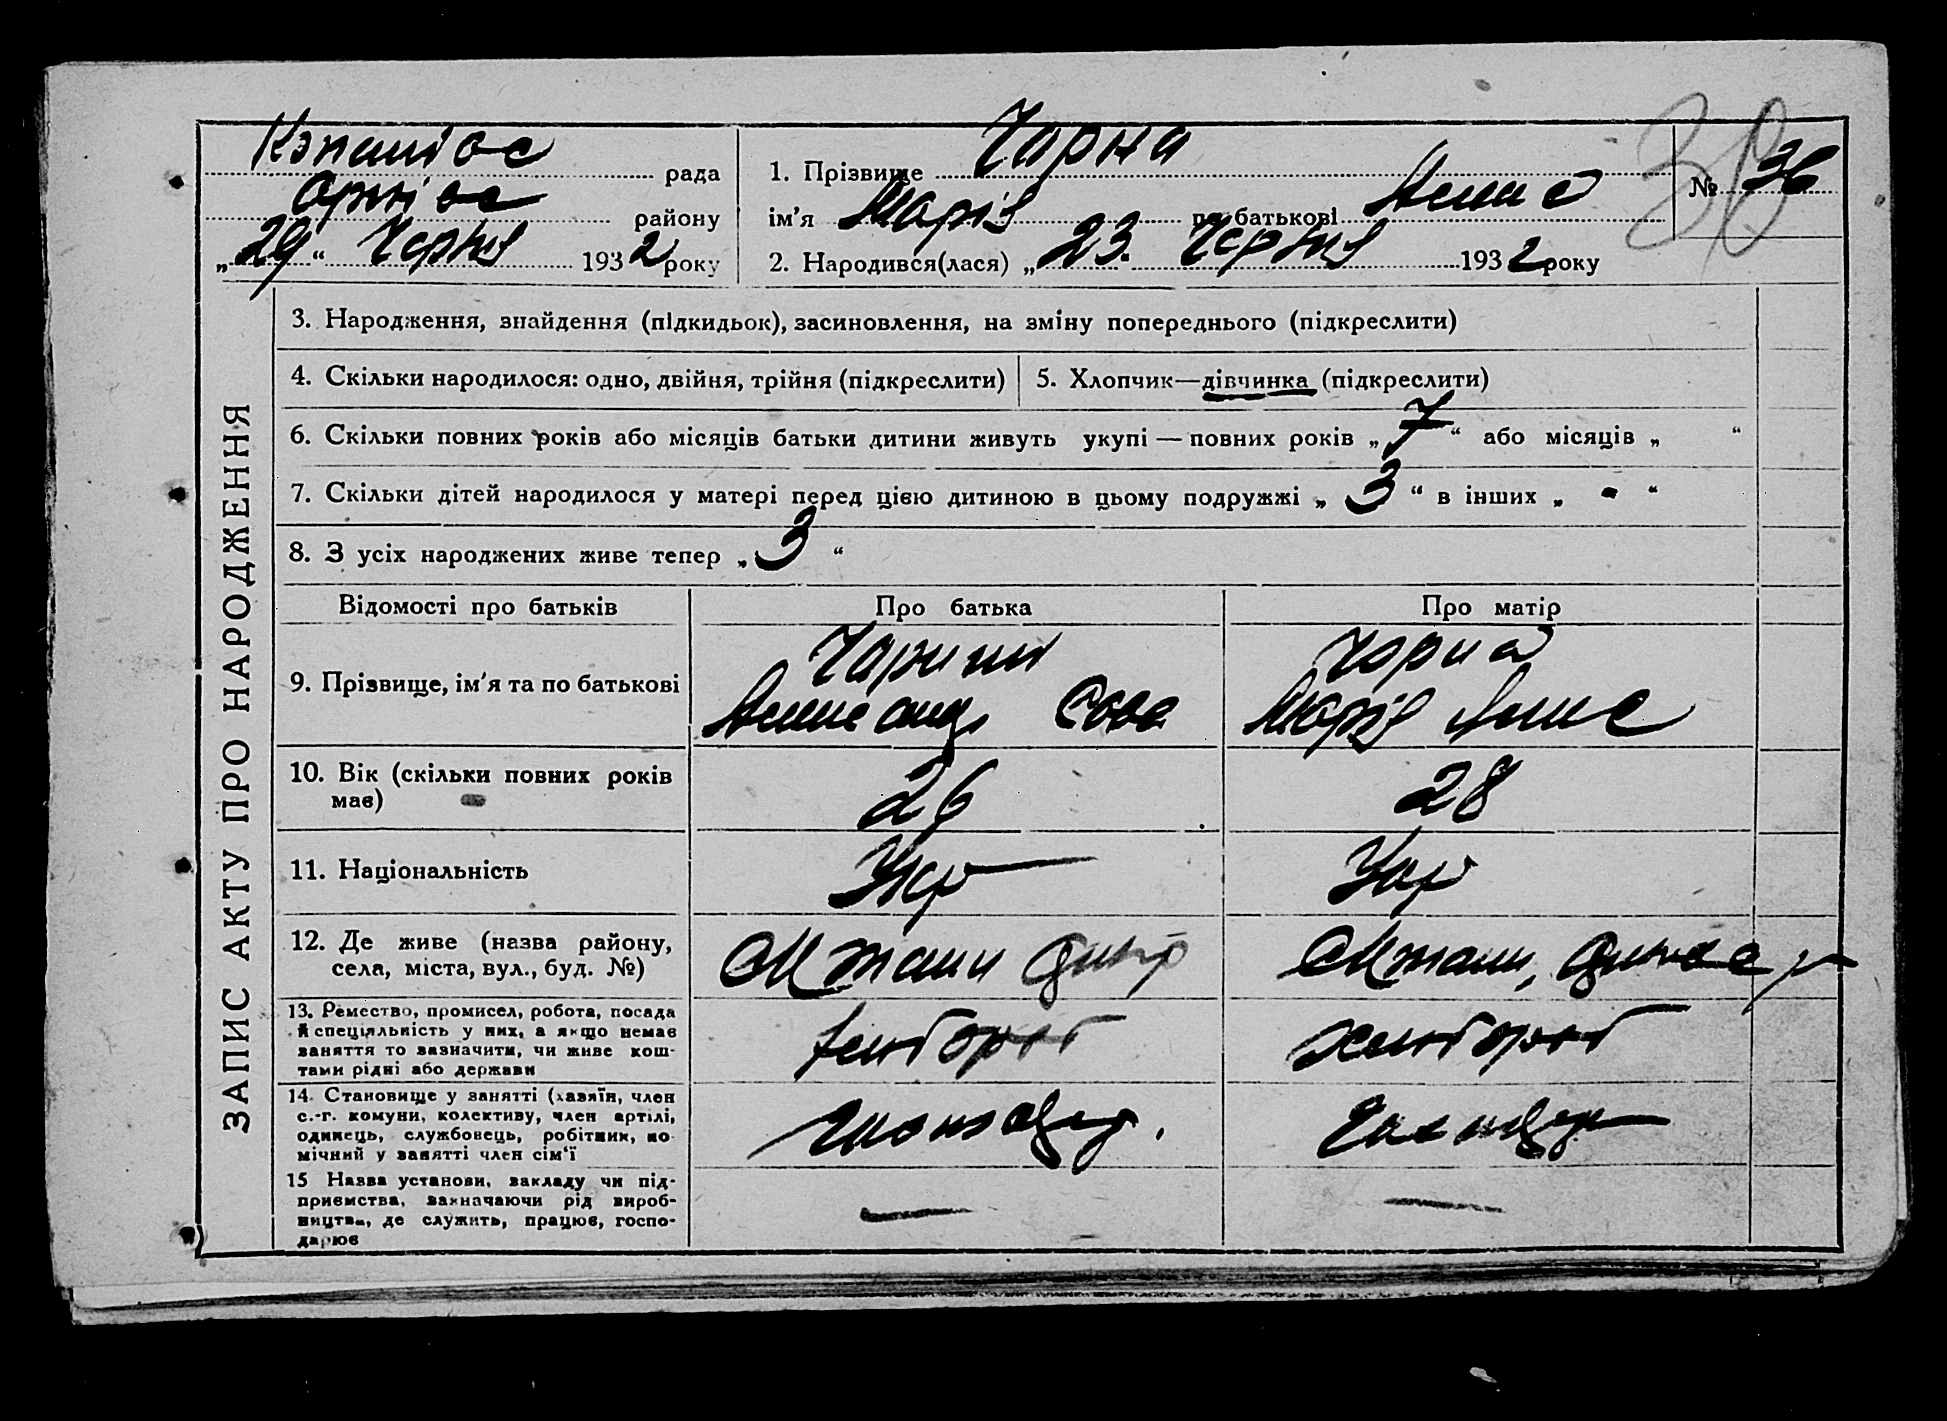 рада
району
„29“ Червня 1932 року
1. Прізвище Чорна
ім'я Марія по батькові
2. Народився(лася) „23. Червня 1932 року
№ 36
ЗАПИС АКТУ ПРО НАРОДЖЕННЯ
3. Народження, знайдення (підкидьок), засиновлення, на зміну попереднього (підкреслити)
4. Скільки народилося: одно, двійня, трійня (підкреслити)
5. Хлопчик—дівчинка (підкреслити)
6. Скільки повних років або місяців батьки дитини живуть укупі — повних років „7“ або місяців „ “
7. Скільки дітей народилося у матері перед цією дитиною в цьому подружжі „3“ в інших „-“
8. З усіх народжених живе тепер „3“
Відомості про батьків
Про батька
Про матір
9. Прізвище, ім'я та по батькові
Чорний
Сава
Чорна
Марія
10. Вік (скільки повних років
має)
26
28
11. Національність
Укр
Укр
12. Де живе (назва району,
села, міста, вул., буд. №)
13. Ремество, промисел, робота, посада
й спеціяльність у них, а якщо немає
заняття то зазначити, чи живе кош-
тами рідні або держави
хлібороб
хлібороб
14. Становище у занятті (хазяїн, член
с.-г. комуни, колективу, член артілі,
одинець, службовець, робітник, по-
мічний у занятті член сім'ї
15 Назва установи, закладу чи під-
приємства, зазначаючи рід вироб-
ництва, де служить, працює, госпо-
дарює
—
—